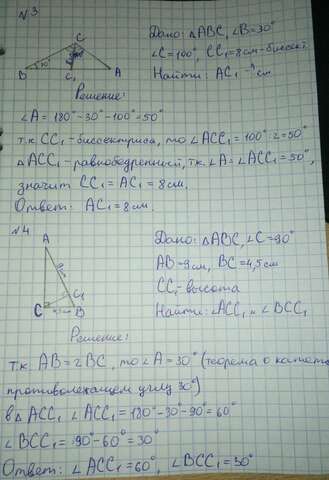 №3
Дано: △ABC, ∠B=30°
∠C=100°, CC₁=8см-биссект.
Найти: AC₁-?см
C
30°
B C₁ A
Решение:
∠A=180°-30°-100°=50°
т.к CC₁-биссектриса, то ∠ACC₁=100°:2=50°
△ACC₁-равнобедренный, т.к. ∠A=∠ACC₁=50°,
значит CC₁=AC₁=8см.
Ответ: AC₁=8см.
№4
A
Дано: △ABC, ∠C=90°
AB=9см, BC=4,5см
CC₁-высота
Найти: ∠ACC₁ и ∠BCC₁
9см
C₁
C B
Решение:
т.к. AB=2BC, то ∠A=30° (теорема о катете,
противолежащем углу 30°)
в△ ACC₁ ∠ACC₁=180°-30°-90°=60°
∠BCC₁=90°-60°=30°
Ответ: ∠ACC₁=60°, ∠BCC₁=30°